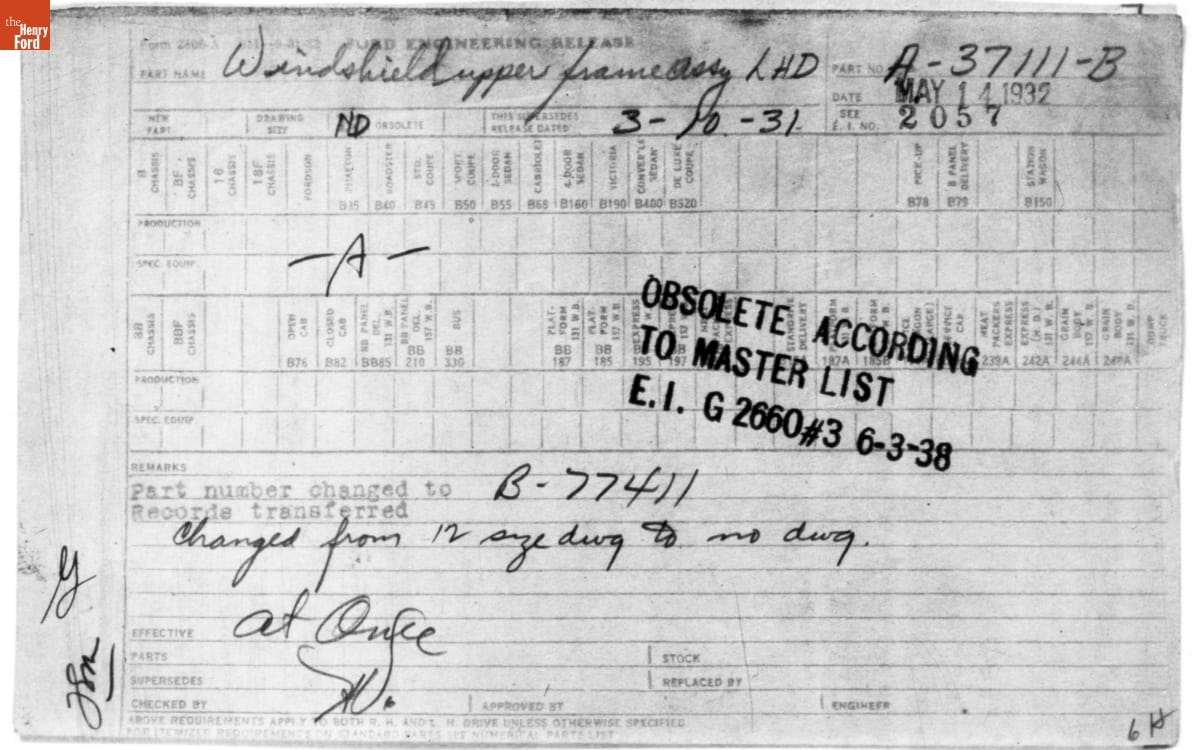 the
Henry
Ford
FORD ENGINEERING RELEASE
PART NAME Windshield upper frame assy LHD
PART NO. A-37111-B
DATE MAY 14 1932
SEE E. I. NO. 2057
NEW PART
DRAWING SIZE ND
OBSOLETE
THIS SUPERSEDES RELEASE DATED 3-10-31
B CHASSIS
BF. CHASSIS
18 CHASSIS
18F CHASSIS
FORDSON
PHAETON B35
ROADSTER B40
STD. COUPE B45
SPORT COUPE B50
2-DOOR SEDAN B55
CABRIOLET B68
4-DOOR SEDAN B160
VICTORIA B190
CONVER'LE SEDAN B400
DE LUXE COUPE B520
PICK-UP B78
B PANEL DELIVERY B79
STATION WAGON B150
PRODUCTION
SPEC. EQUIP.
-A-
BB CHASSIS
BBF CHASSIS
OPEN CAB B76
CLOSED CAB B82
BB PANEL DEL. 131 W.B. BB85
BB PANEL DEL. 157 W.B. BB 210
BUS BB 330
PLAT-FORM 131 W.B. BB 187
PLAT-FORM 157 W.B. BB 185
EXPRESS 195
157 197
STANDRIVE DELIVERY
187A
185B
SERVICE CAP.
MEAT PACKERS EXPRESS 239A
EXPRESS (H.D.) 131 W.B. 242A
GRAIN BODY 157 W.B. 244A
GRAIN BODY 131 W.B.
DUMP TRUCK
PRODUCTION
SPEC. EQUIP.
OBSOLETE ACCORDING
TO MASTER LIST
E.I. G 2660#3 6-3-38
REMARKS
Part number changed to B-77411
Records transferred
Changed from 12 size dwg to no dwg.
EFFECTIVE at Once
PARTS
STOCK
SUPERSEDES
REPLACED BY
CHECKED BY
APPROVED BY
ENGINEER
ABOVE REQUIREMENTS APPLY TO BOTH R. H. AND L. H. DRIVE UNLESS OTHERWISE SPECIFIED
FOR ITEMIZED REQUIREMENTS ON STANDARD PARTS SEE NUMERICAL PARTS LIST